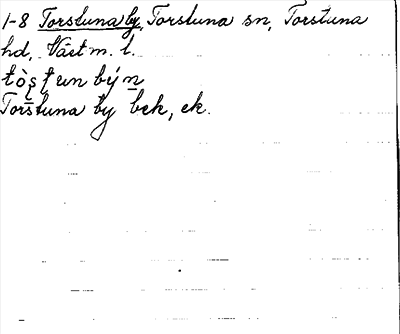 1-8 Torstuna by, Torstuna sn, Torstuna
hd, Västm. l.
tòʂʈun býn
Torstuna by bek, ek.